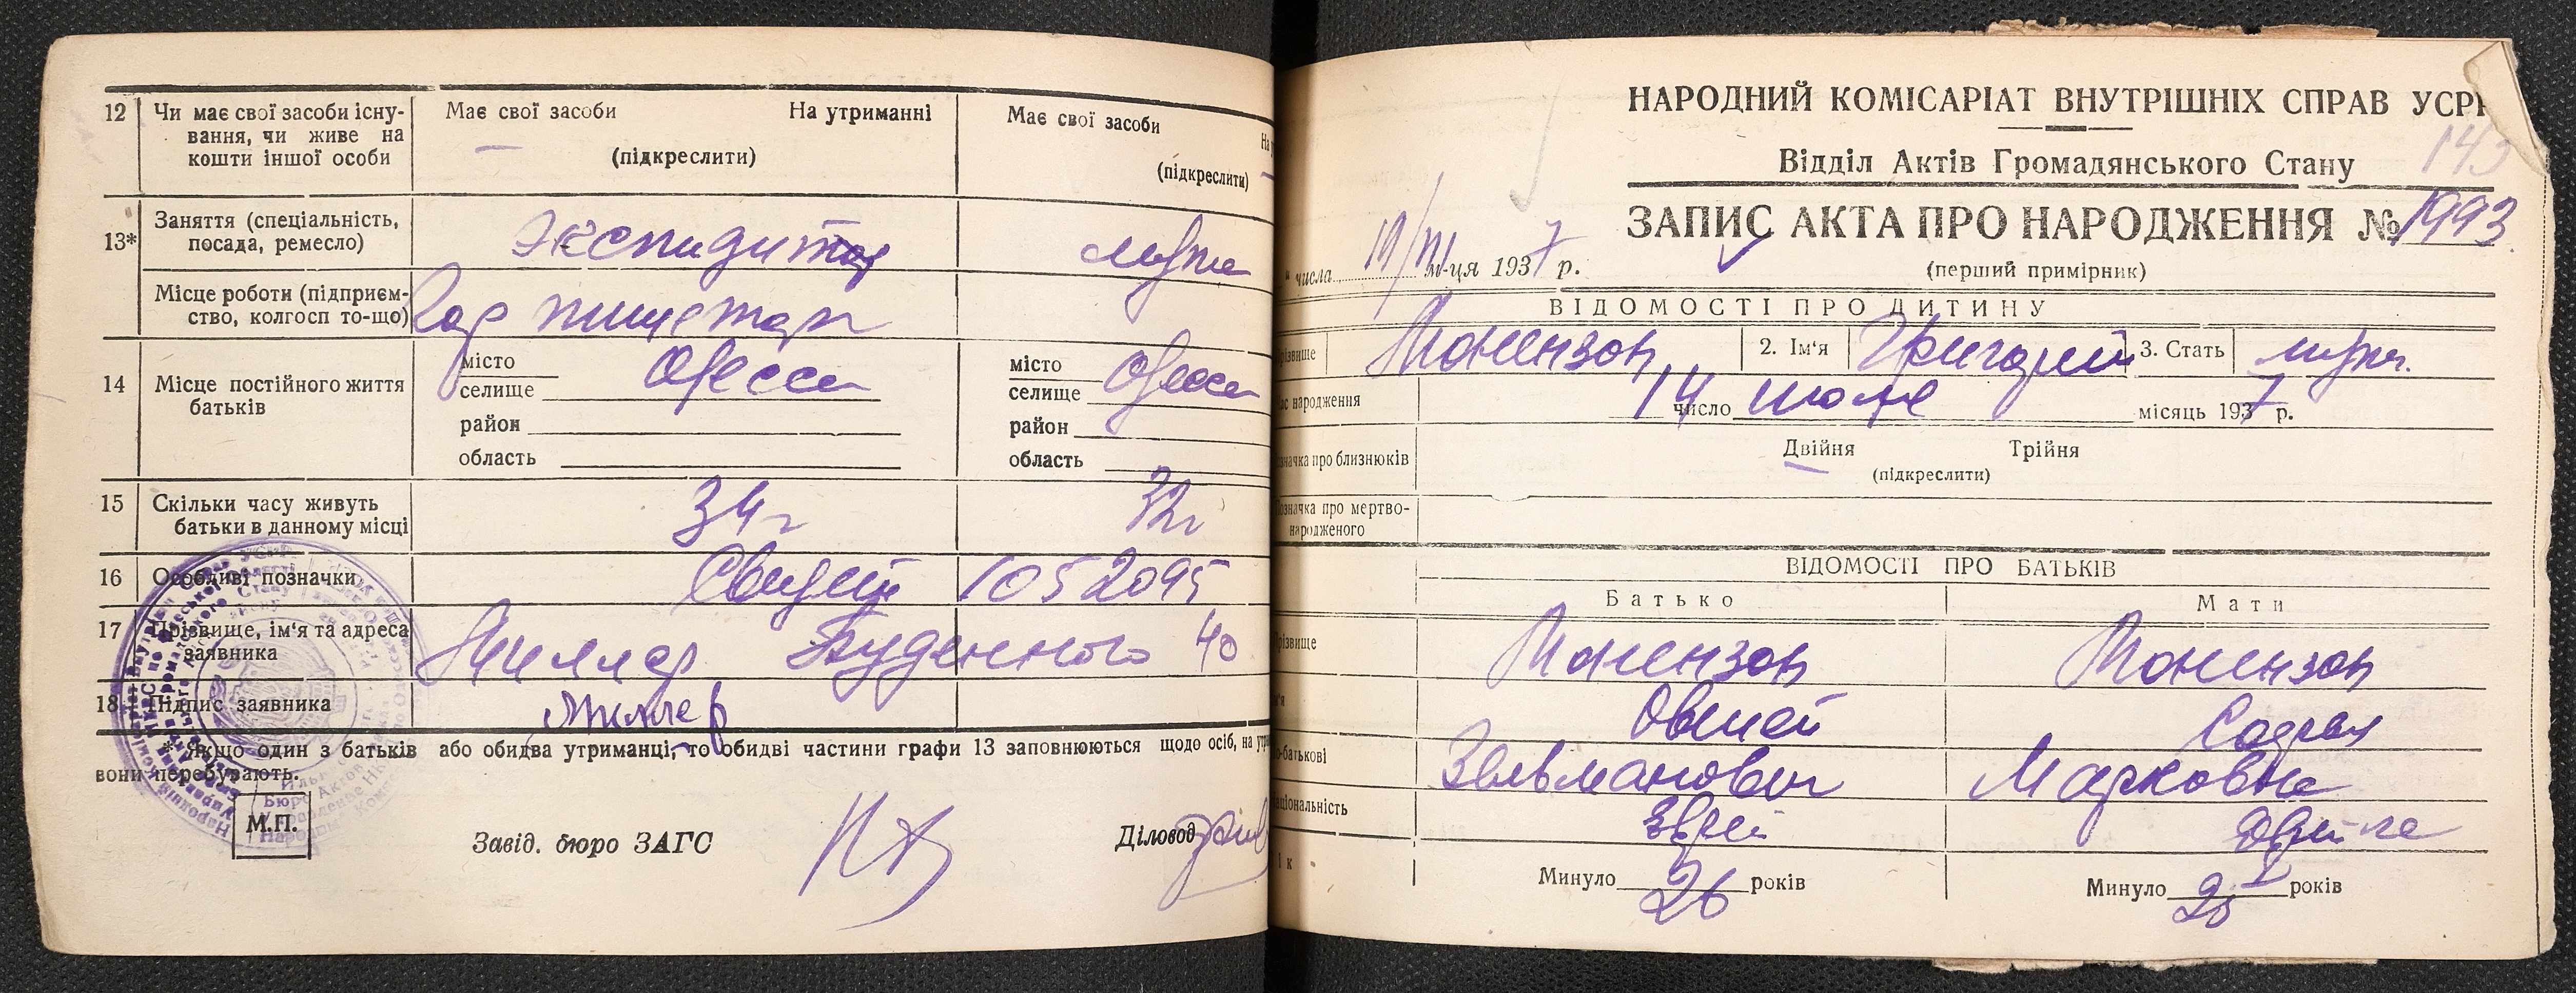 12 Чи має свої засоби існування, чи живе на кошти іншої особи
Має свої засоби На утриманні
(підкреслити)
Має свої засоби
(підкреслити)
13* Заняття (спеціальність, посада, ремесло)
экспидитор
Місце роботи (підприємство, колгосп то-що)
14 Місце постійного життя батьків
місто Одесса
селище
район
область
місто Одесса
селище
район
область
15 Скільки часу живуть батьки в данному місці
34 г
32 г
16 Особливі позначки
1052095
17 Прізвище, ім'я та адреса заявника
Миллер Буденного 40
18 Підпис заявника
Миллер
* Якщо один з батьків або обидва утриманці, то обидві частини графи 13 заповнюються щодо осіб, на
вони перебувають.
М.П.
Завід. бюро ЗАГС
Діловод
НАРОДНИЙ КОМІСАРІАТ ВНУТРІШНІХ СПРАВ
143
Відділ Актів Громадянського Стану
ЗАПИС АКТА ПРО НАРОДЖЕННЯ № 1993
числа м-ця 1937 р.
(перший примірник)
ВІДОМОСТІ ПРО ДИТИНУ
2. Ім'я Григорий 3. Стать муж.
народження 14 число июля місяць 1937 р.
про близнюків
Двійня Трійня
(підкреслити)
про мертвонародженого
ВІДОМОСТІ ПРО БАТЬКІВ
Батько Мати
Овшей
Зельманович Марковна
Еврей
Минуло 26 років Минуло років